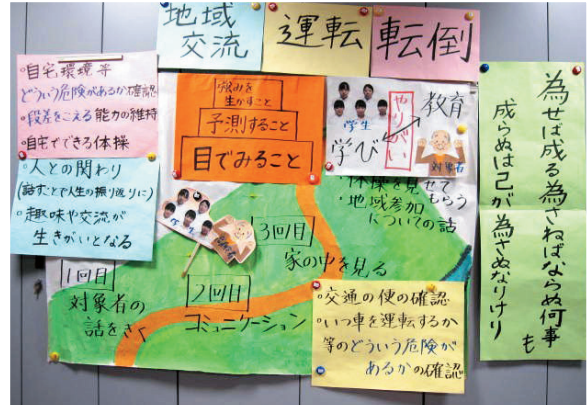 地域
交流
運転
転倒
・自宅、環境等
どういう危険があるか確認
・段差をこえる能力の維持
・自宅でできる体操
・人との関わり
(話すことで人生の振り返りに)
・趣味や交流が
生きがいとなる
強みを
生かすこと
予測すること
目でみること
学生
学び
やりがい
教育
対象者
・体操を見せてもらう
・地域参加
についての話
学生
3回目
家の中を見る
1回目
対象者の
話をきく
2回目
コミュニケーション
・交通の便の確認
・いつ車を運転するか
等のどういう危険が
あるかの確認
為せば成る為さねばならぬ何事も
成らぬは己が為さぬなりけり